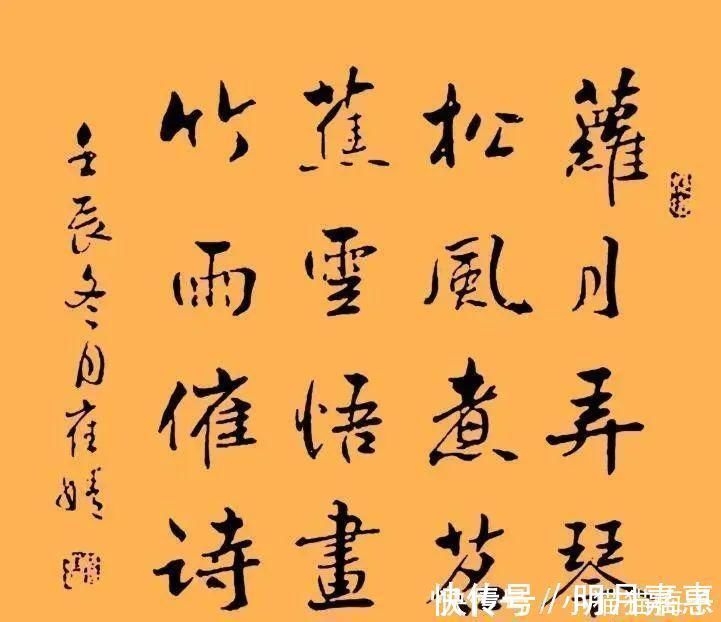 蘿月弄琴
松風煮茗
蕉雲悟畫
竹雨催诗
壬辰冬月崔婧
快传号／